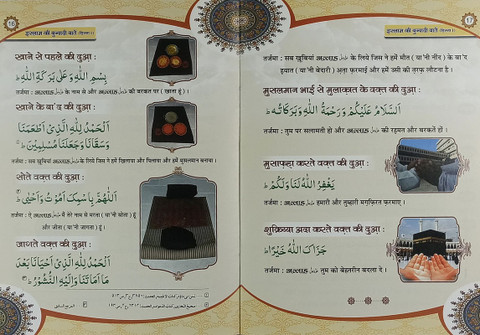 16
इस्लाम की बुन्यादी बातें (हिस्सा1)
खाने से पहले की दुआ :
بِسْمِ اللّٰهِ وَعَلٰى بَرَكَةِ اللّٰهِ ط
तर्जमा : अल्लाह के नाम से और अल्लाह की बरकत पर ( खाता हूं ) ।
खाने के बा'द की दुआ :
اَلْحَمْدُ لِلّٰهِ الَّذِيْ اَطْعَمَنَا
وَسَقَانَا وَجَعَلَنَا مُسْلِمِيْنَ ط
तर्जमा : सब खूबियां अल्लाह के लिये जिस ने हमें खिलाया और पिलाया और हमें मुसलमान बनाया ।
सोते वक़्त की दुआ :
اَللّٰهُمَّ بِاسْمِكَ اَمُوْتُ وَاَحْيٰى ط
तर्जमा : ऐ अल्लाह मैं तेरे नाम से मरता ( या'नी सोता ) हूं
और जीता ( या'नी जागता ) हूं ।
जागते वक़्त की दुआ :
اَلْحَمْدُ لِلّٰهِ الَّذِيْ اَحْيَانَا بَعْدَ
مَا اَمَاتَنَا وَاِلَيْهِ النُّشُوْرُ ط
17
इस्लाम की बुन्यादी बातें (हिस्सा1)
तर्जमा : सब खूबियां अल्लाह के लिये जिस ने हमें मौत ( या'नी नींद ) के बा'द
हयात ( या'नी बेदारी ) अता फ़रमाई और हमें उसी की तरफ़ लौटना है ।
मुसलमान भाई से मुलाक़ात के वक़्त की दुआ :
اَلسَّلَامُ عَلَيْكُمْ وَرَحْمَةُ اللّٰهِ وَبَرَكَاتُهٗ ط
तर्जमा : तुम पर सलामती हो और अल्लाह की रहमत और बरकतें हों ।
मुसाफ़हा करते वक़्त की दुआ :
يَغْفِرُ اللّٰهُ لَنَا وَلَكُمْ ط
तर्जमा : अल्लाह हमारी और तुम्हारी मग़फ़िरत फ़रमाए ।
शुक्रिय्या अदा करते वक़्त की दुआ :
جَزَاكَ اللّٰهُ خَيْرًا ط
तर्जमा : अल्लाह तुम को बेहतरीन बदला दे ।